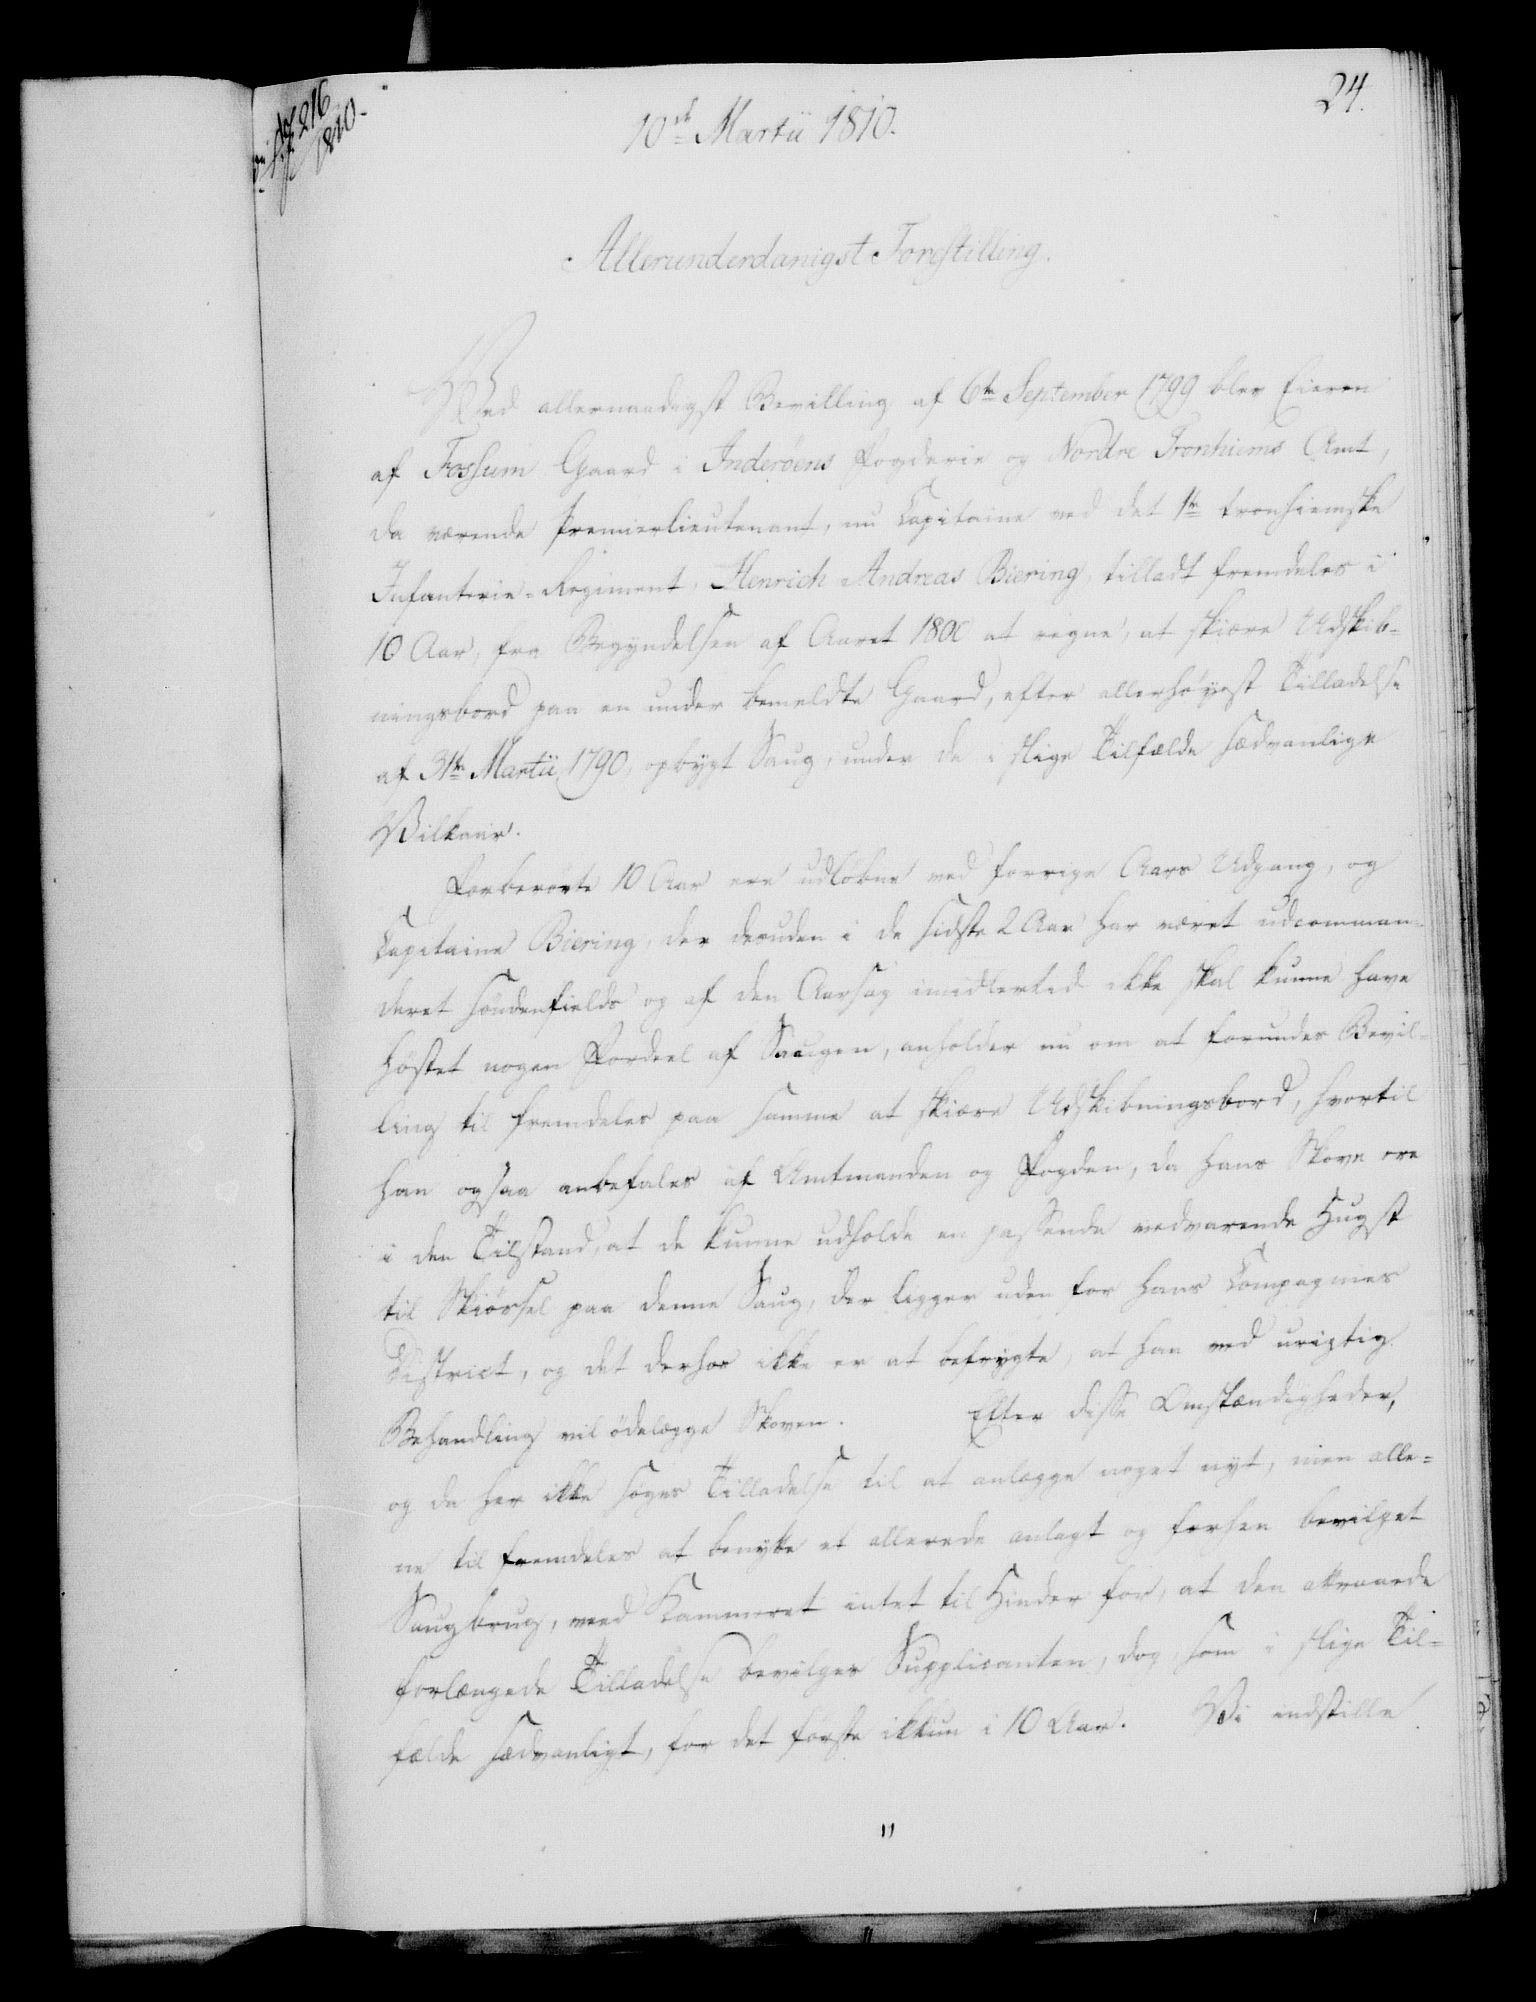 24.
No 216
1810.
10de Martii 1810.
Allerunderdanigst Forestilling.
Ved allernaadigst Bevilling af 6te September 1799 blev Eieren
af Fossum Gaard i Inderöens Fogderie og Nordre Tronhiems Amt,
da værende Premierlieutenant, nu Capitaine ved det 1te tronhiemske
Infanterie-Regiment, Henrich Andreas Biering, tilladt fremdeles i
10 Aar, fra Begyndelsen af Aaret 1800 at regne, at skiære Udskib-
ningsbord paa en under bemeldte Gaard, efter allerhöyest Tilladelse
af 31te Martii 1790, opbygt Saug, under de i slige Tilfælde sædvanlige
Vilkaar.
Forberörte 10 Aar ere udlöbne ved forrige Aars Udgang, og
Capitaine Biering, der desuden i de sidste 2 Aar har været udcomman-
deret söndenfields og af den Aarsag imidlertid ikke skal kunne have
höstet nogen Fordeel af Saugen, anholder nu om at forundes Bevil-
ling til fremdeles paa samme at skiære Udskibningsbord, hvortil
han ogsaa anbefales af Amtmanden og Fogden, da hans Skove ere
i den Tilstand, at de kunne udholde en passende vedvarende Hugst
til Skiörsel paa denne Saug, der ligger uden for hans Compagnies
District, og det derhos ikke er at befrygte, at han ved urigtig
Behandling vil ödelægge Skoven. Efter disse Omstændigheder,
og da her ikke söges Tilladelse til at anlægge noget nyt, men alle-
ne til fremdeles at benytte et allerede anlagt og forhen bevilget
Saugbrug, veed Kammeret intet til Hinder for, at den attraaede
forlængede Tilladelse bevilges Supplicanten, dog, som i slige Til-
fælde sædvanligt, for det förste ikkun i 10 Aar. Vi indstille